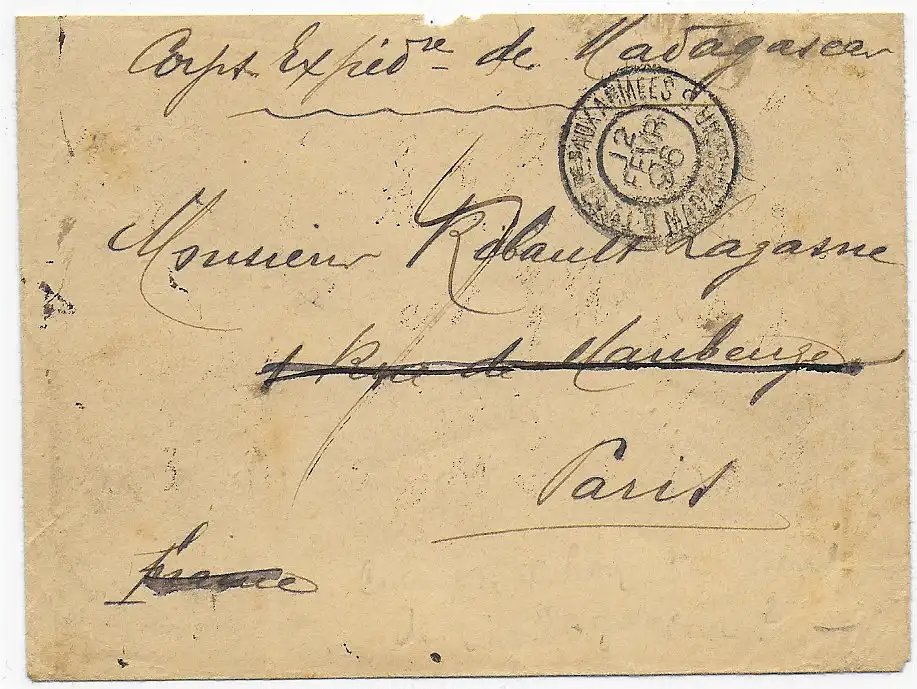 Corps Expédre de Madagascar
AUX ARMEES
12
FEVR
96
Monsieur Ribault Lagasne
1 Rue de Maubeuge
Paris
France